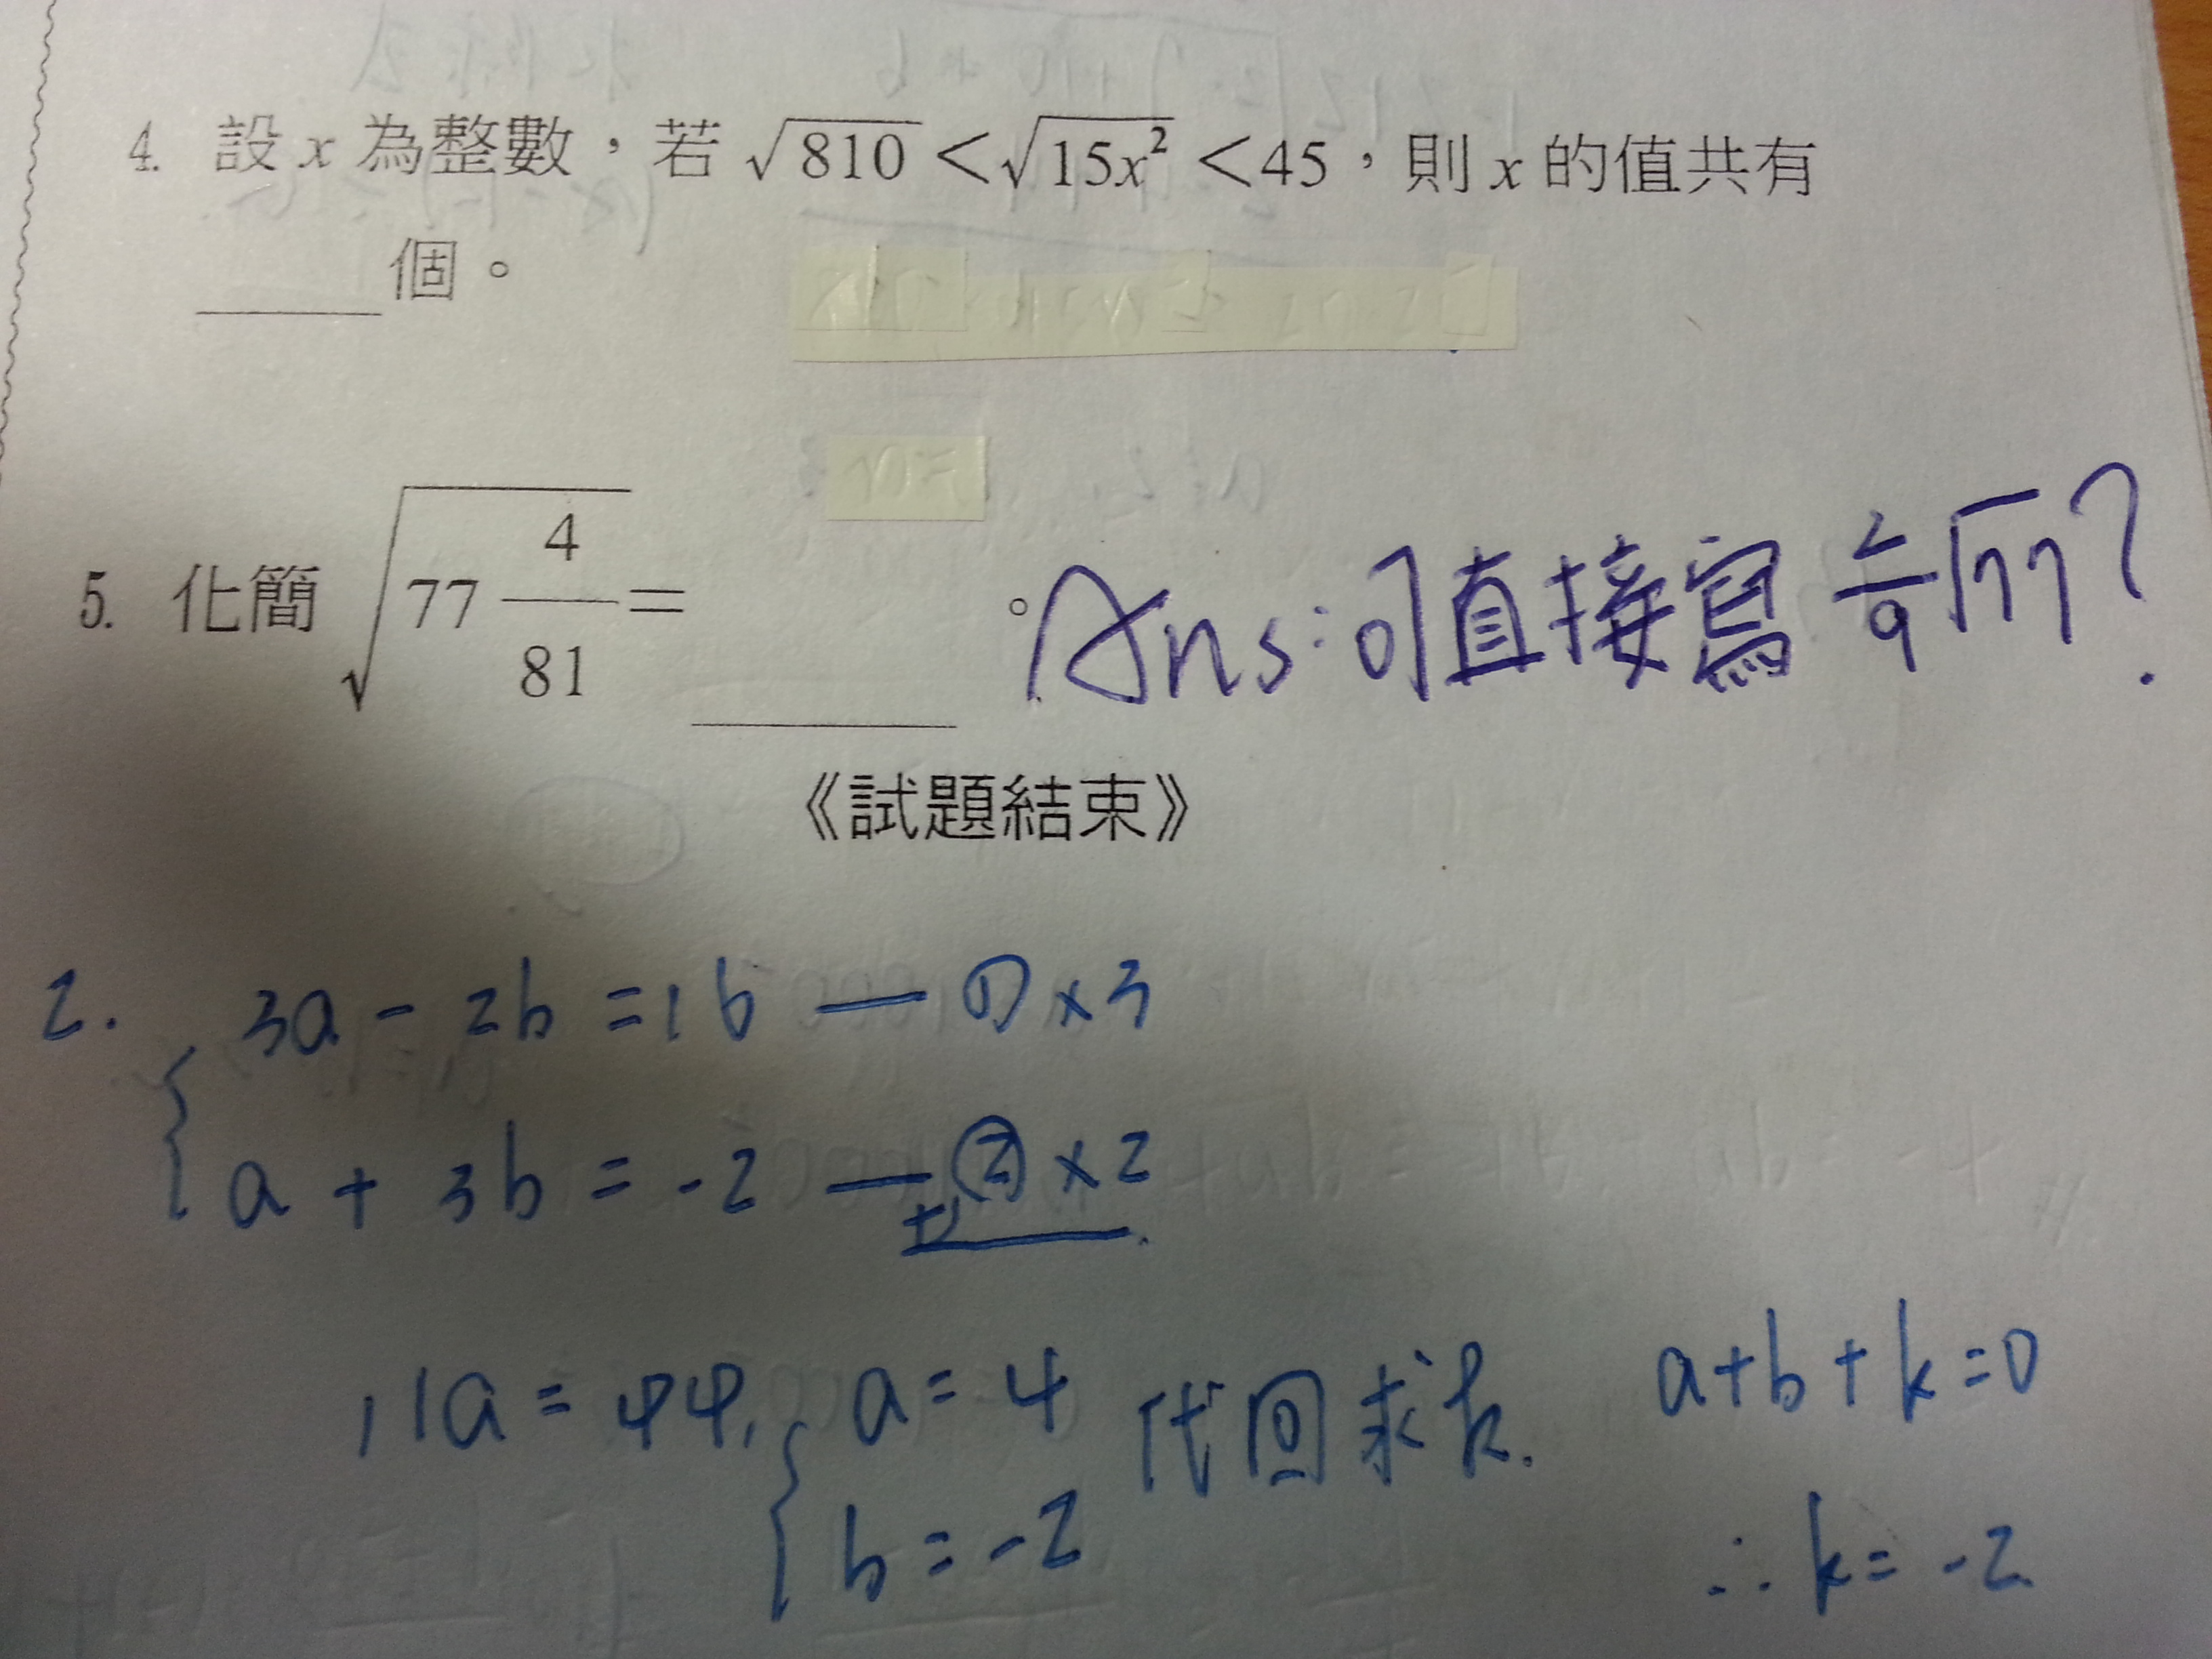 4. 設 x 為整數，若 √810 < √15x² < 45，則 x 的值共有
____個。
5. 化簡 √(77 4/81) = ____。 Ans: 可直接寫 2/9 √77?
《試題結束》
2. 3a - 2b = 16 — ① × 3
a + 3b = -2 — ② × 2
+)
11a = 44, a = 4 代回求k. a+b+k=0
b = -2 ∴ k = -2